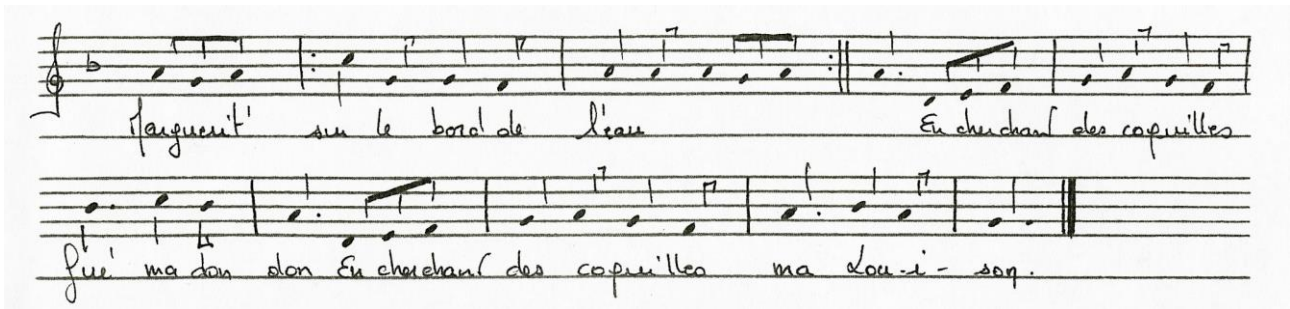 Marguerit' sur le bord de l'eau En cherchant des coquilles
Gué ma don don En cherchant des coquilles ma Lou-i-son.